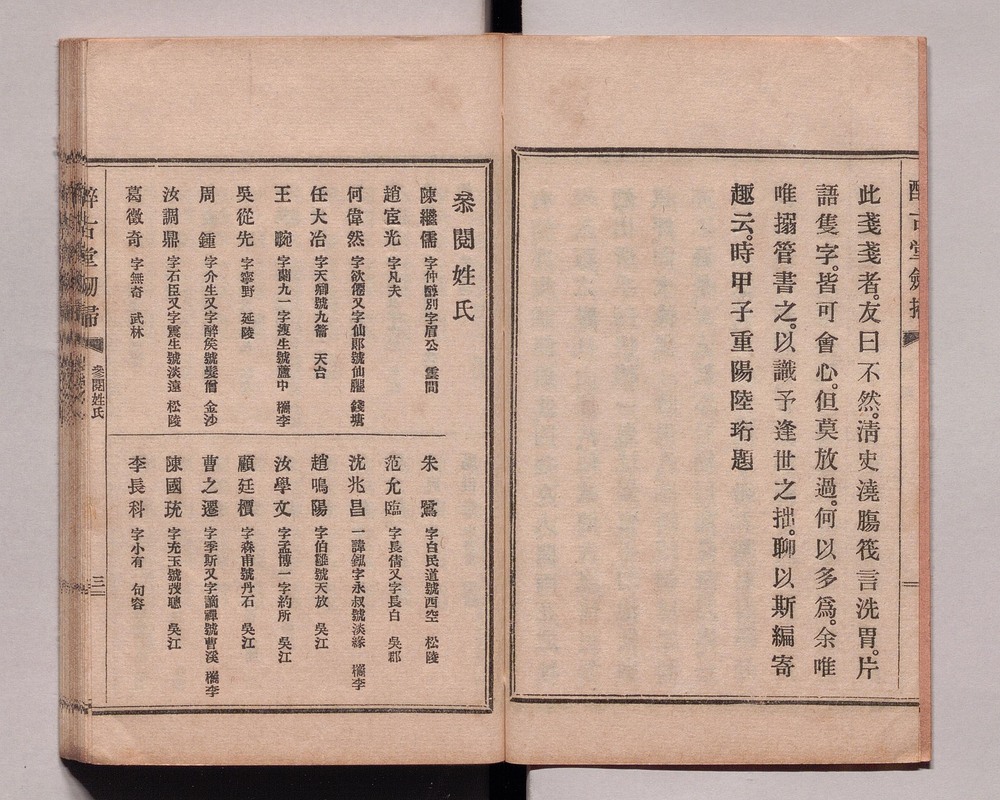 此戔戔者。友曰不然。淸史澆腸筏言洗胃。片
語隻字。皆可會心。但莫放過。何以多爲。余唯
唯搦管書之。以識予逢世之拙。聊以斯編寄
趣云。時甲子重陽陸珩題
參閱姓氏
陳繼儒 字仲醇別字眉公 雲間
趙宧光 字凡夫
何偉然 字欲僊又字仙郎號仙臞 錢塘
任大冶 字天卿號九籥 天台
王 晼 字蘭九一字瘦生號蘆中 檇李
吳從先 字寧野 延陵
周 鍾 字介生又字醉侯號髮僧 金沙
汝調鼎 字石臣又字震生號淡遠 松陵
葛徵奇 字無奇 武林
朱 鷺 字白民道號西空 松陵
范允臨 字長倩又字長白 吳郡
沈兆昌 一諱 字永叔號淡緣 檇李
趙鳴陽 字伯雝號天放 吳江
汝學文 字孟博一字約所 吳江
顧廷櫝 字森甫號丹石 吳江
曹之遷 字季斯又字謫禪號曹溪 檇李
陳國珫 字充玉號 吳江
李長科 字小有 句容
醉古堂劒掃
參閱姓氏
三